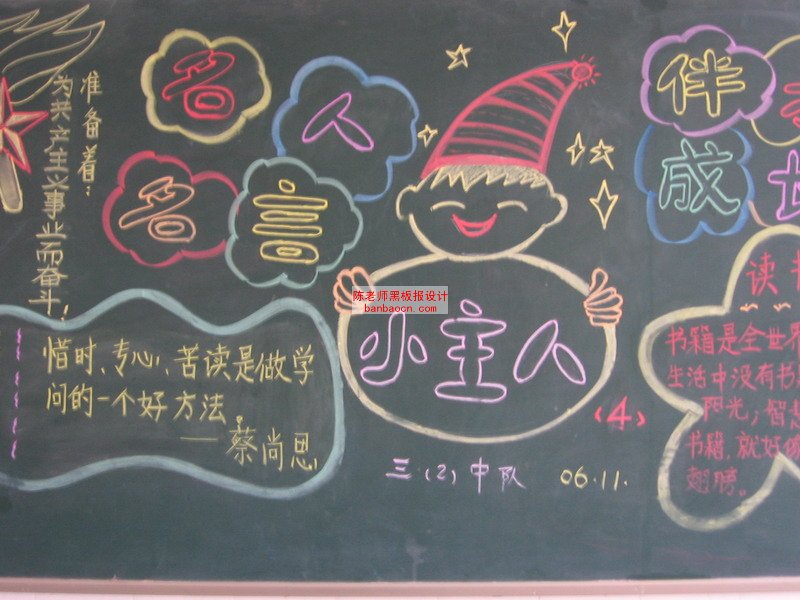 准备着：
为共产主义事业而奋斗！
名人
名言
伴
成
陈老师黑板报设计
banbaocn.com
小主人
(4)
三(2)中队 06.11.
惜时、专心、苦读是做学
问的一个好方法
——蔡尚思
读书
书籍是全世界
生活中没有书
阳光；智慧
书籍，就好像
翅膀。